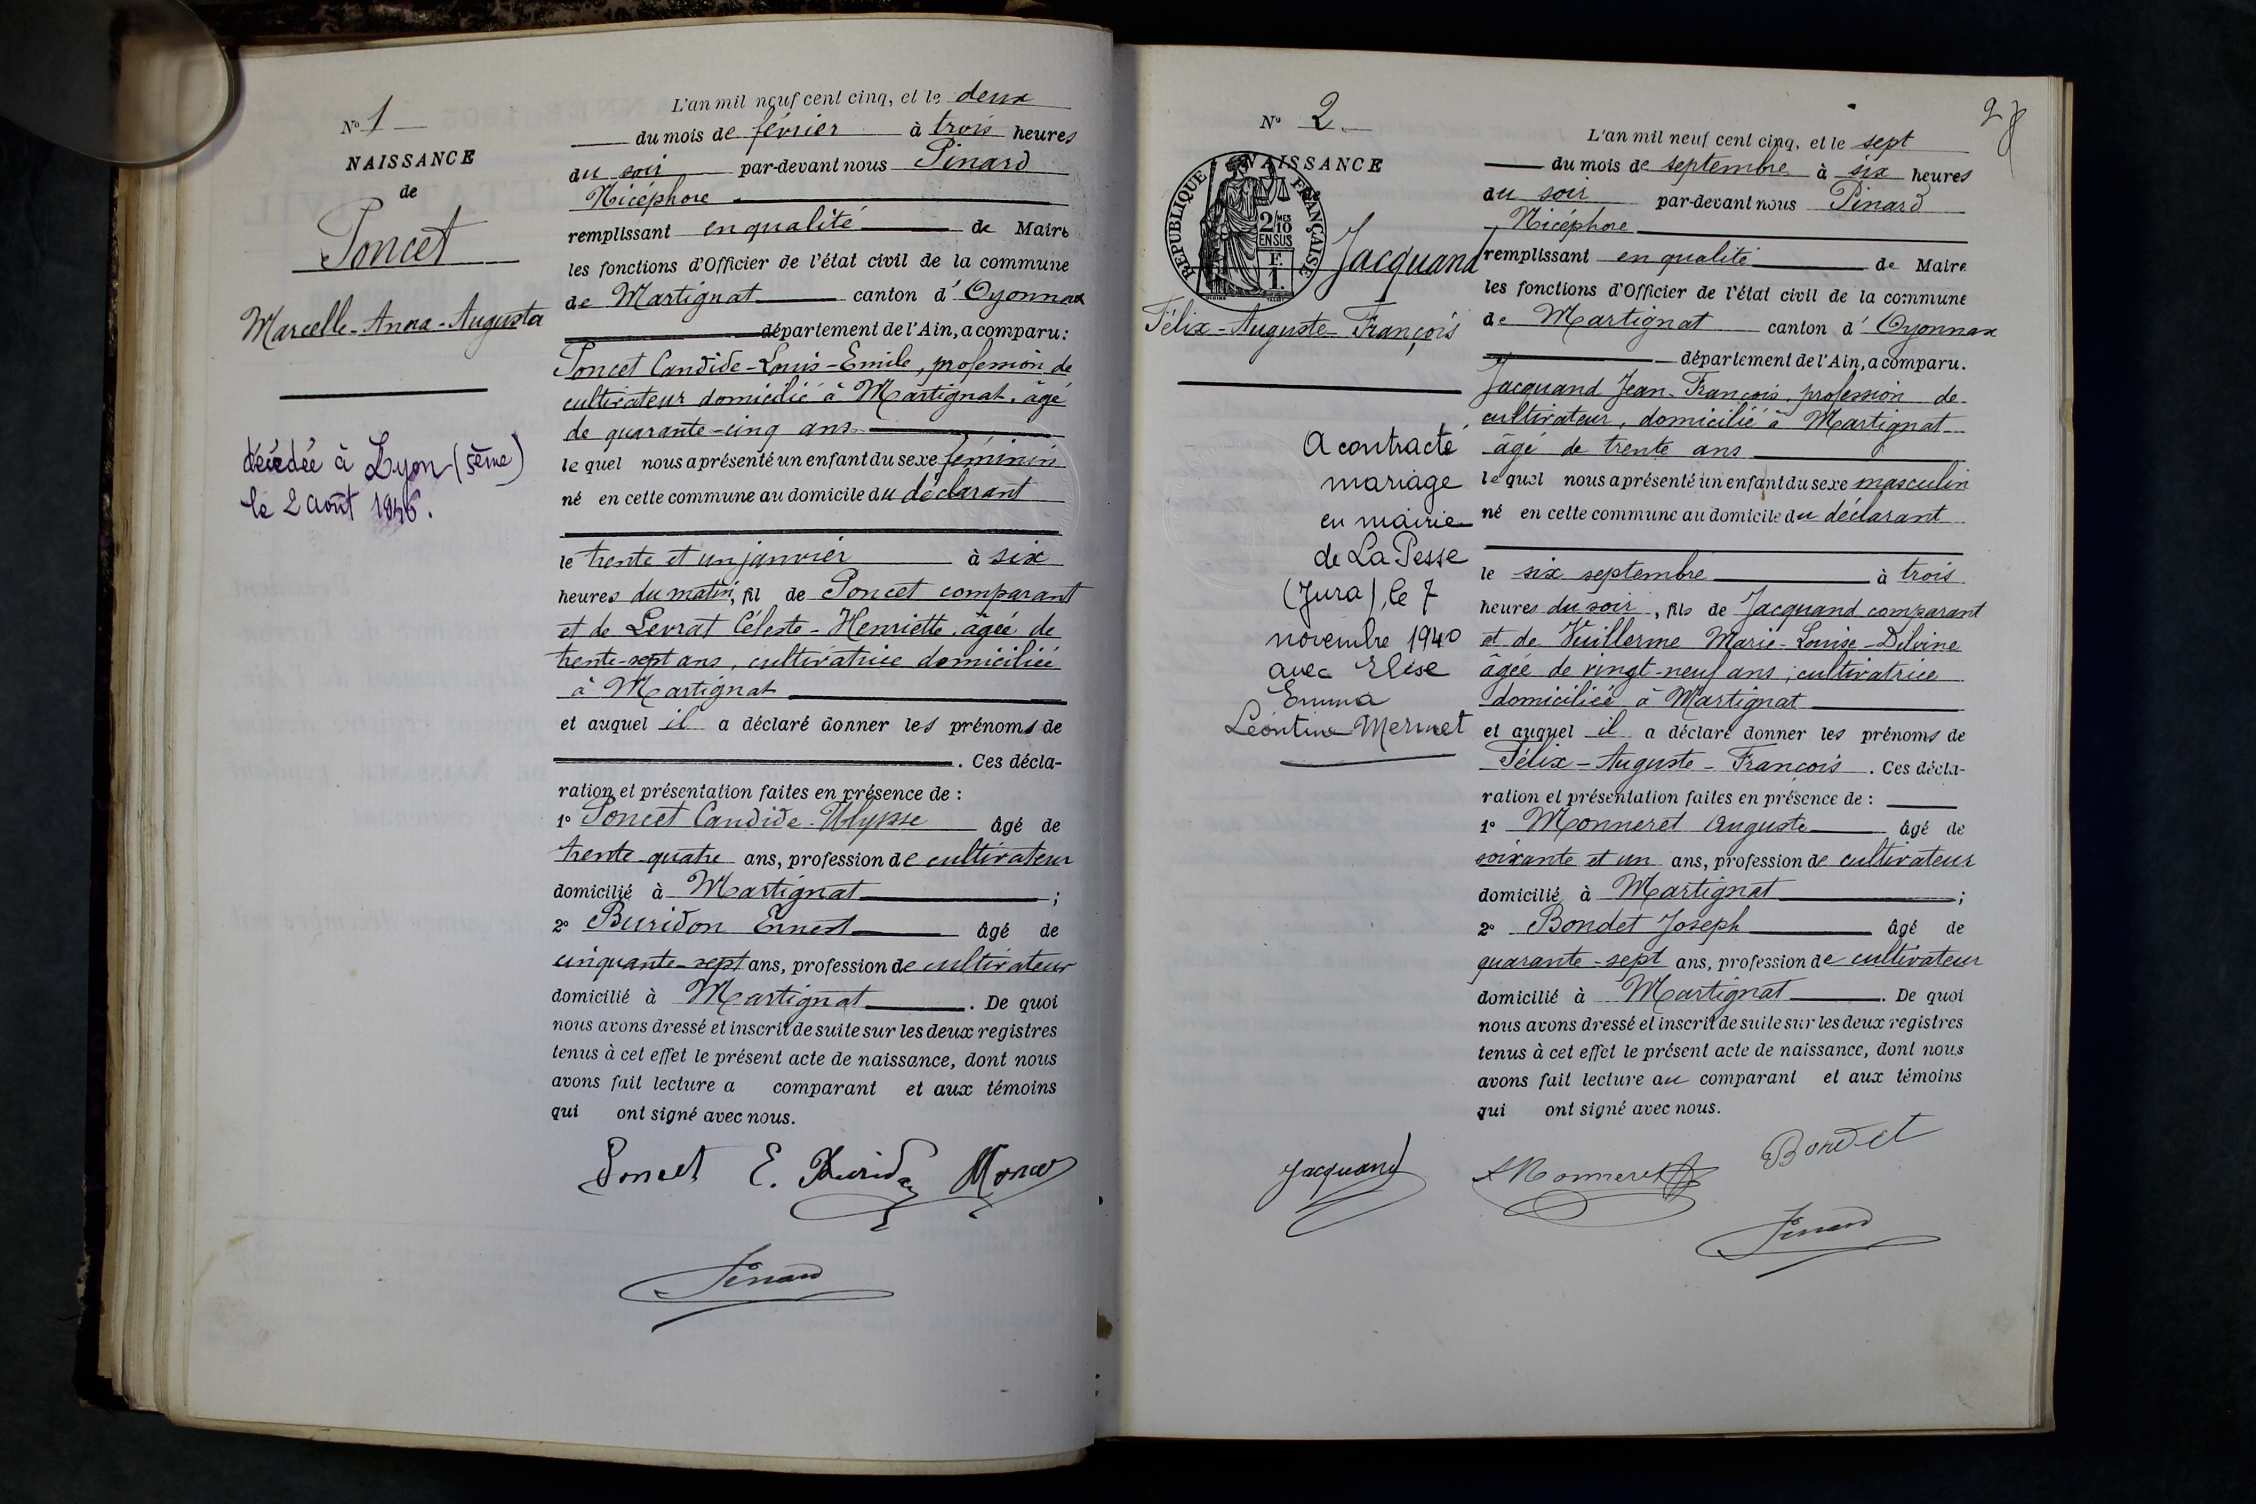 N° 1
NAISSANCE
de
Poncet
Marcelle-Anna-Augusta
décédée à Lyon (5ème)
le 2 août 1946.
L'an mil neuf cent cinq, et le deux
du mois de février à trois heures
du soir par-devant nous Pinard
Nicéphore
remplissant en qualité de Maire
les fonctions d'Officier de l'état civil de la commune
de Martignat canton d'Oyonnax
département de l'Ain, a comparu:
Poncet Candide-Louis-Emile, profession de
cultivateur domicilié à Martignat, âgé
de quarante-cinq ans
le quel nous a présenté un enfant du sexe féminin
né en cette commune au domicile du déclarant
le trente et un janvier à six
heures du matin, fil de Poncet comparant
et de Levrat Céleste-Henriette, âgée de
trente-sept ans, cultivatrice domiciliée
à Martignat
et auquel il a déclaré donner les prénoms de
. Ces décla-
ration et présentation faites en présence de :
1° Poncet Candide-Ulysse âgé de
trente-quatre ans, profession de cultivateur
domicilié à Martignat ;
2° Buridon Ernest âgé de
cinquante-sept ans, profession de cultivateur
domicilié à Martignat . De quoi
nous avons dressé et inscrit de suite sur les deux registres
tenus à cet effet le présent acte de naissance, dont nous
avons fait lecture a comparant et aux témoins
qui ont signé avec nous.
Poncet E. Buridon
Pinard
2
N° 2
NAISSANCE
RÉPUBLIQUE FRANÇAISE
2/10
MES
EN SUS
F.
1.
Jacquand
Félix-Auguste-François
A contracté
mariage
en mairie
de La Pesse
(Jura), le 7
novembre 1940
avec Elise
Emma
Léontine Mermet
L'an mil neuf cent cinq, et le sept
du mois de septembre à six heures
du soir par-devant nous Pinard
Nicéphore
remplissant en qualité de Maire
les fonctions d'Officier de l'état civil de la commune
de Martignat canton d'Oyonnax
département de l'Ain, a comparu.
Jacquand Jean-François, profession de
cultivateur, domicilié à Martignat
âgé de trente ans
le quel nous a présenté un enfant du sexe masculin
né en cette commune au domicile du déclarant
le six septembre à trois
heures du soir, fils de Jacquand comparant
et de Vuillerme Marie-Louise-Delvine
âgée de vingt-neuf ans, cultivatrice
domiciliée à Martignat
et auquel il a déclaré donner les prénoms de
Félix-Auguste-François . Ces décla-
ration et présentation faites en présence de :
1° Monneret Auguste âgé de
soixante et un ans, profession de cultivateur
domicilié à Martignat ;
2° Bondet Joseph âgé de
quarante-sept ans, profession de cultivateur
domicilié à Martignat . De quoi
nous avons dressé et inscrit de suite sur les deux registres
tenus à cet effet le présent acte de naissance, dont nous
avons fait lecture au comparant et aux témoins
qui ont signé avec nous.
Jacquand Monneret Bondet
Pinard